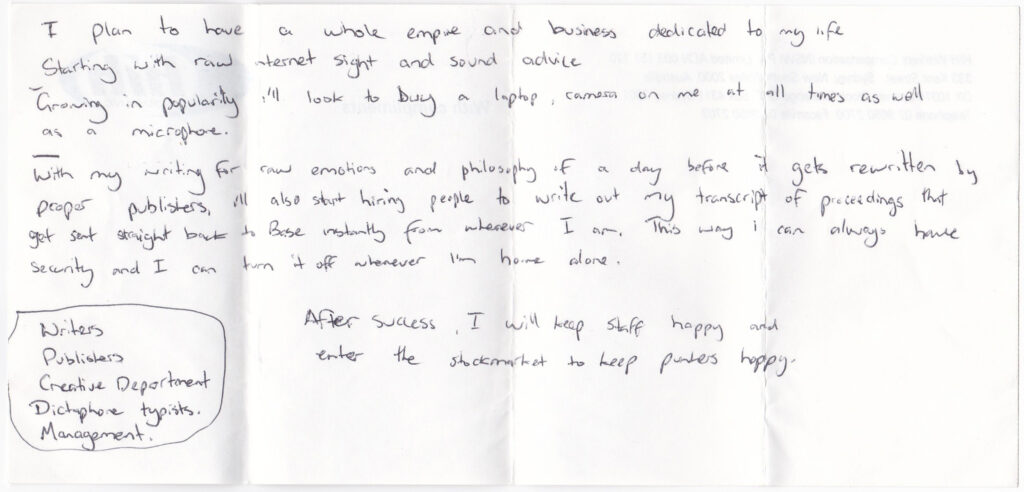 I plan to have a whole empire and business dedicated to my life
Starting with raw internet sight and sound advice
Growing in popularity i'll look to buy a laptop, camera on me at all times as well
as a microphone.
With my writing for raw emotions and philosophy of a day before it gets rewritten by
proper publishers, i'll also start hiring people to write out my transcript of proceedings that
get sent straight back to Base instantly from whenever I am. This way i can always have
security and I can turn it off whenever I'm home alone.
Writers
Publishers
Creative Department
Dictaphone typists.
Management.
After success, I will keep staff happy and
enter the stockmarket to keep punters happy.